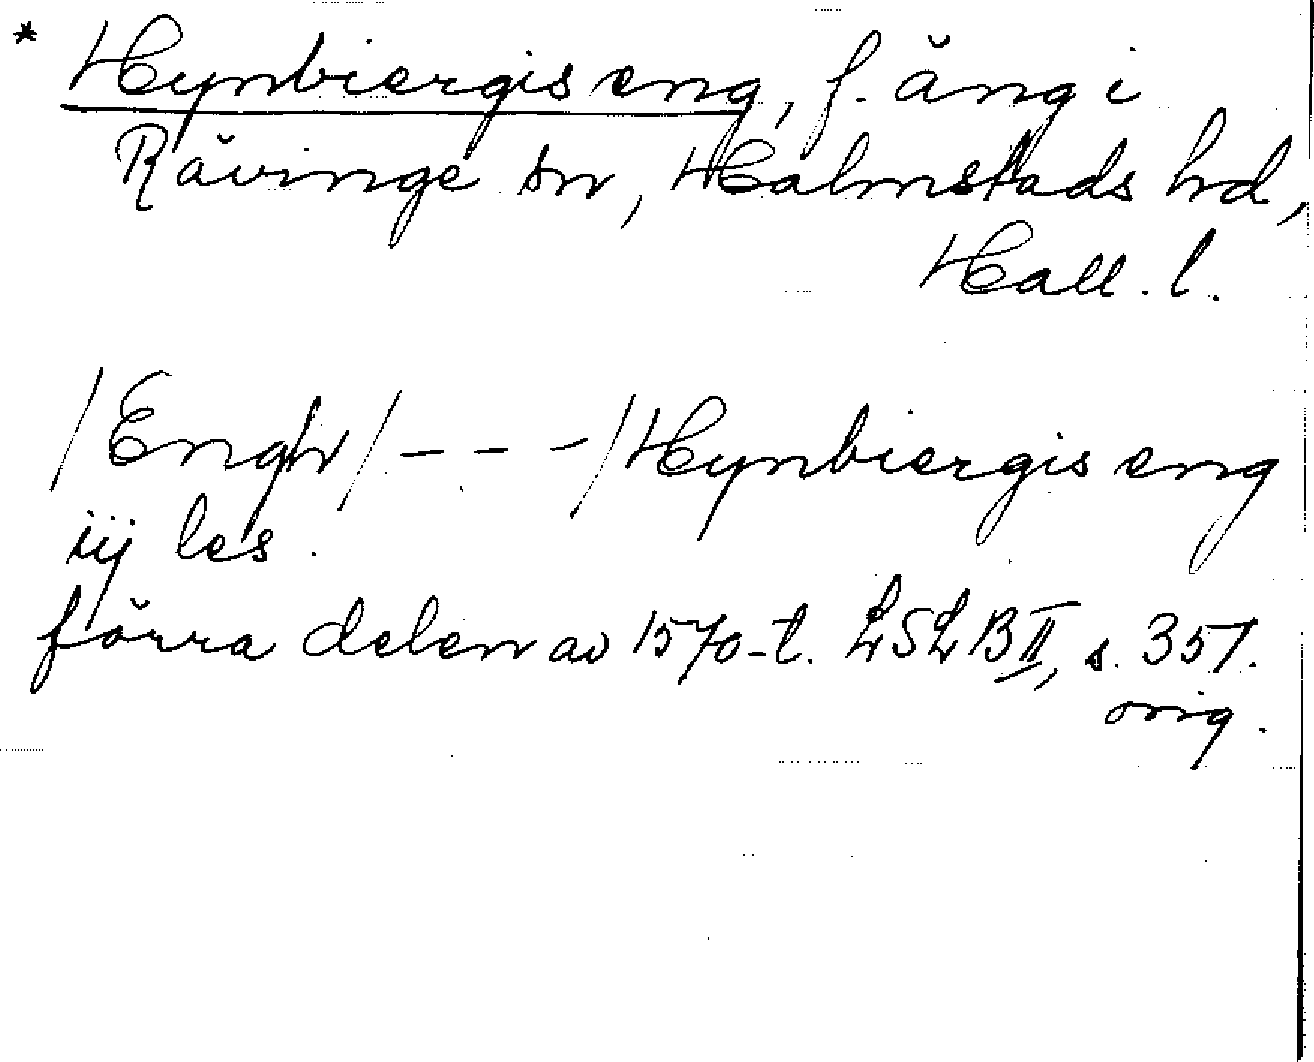 * Hynbiergis eng, f. äng i
Rävinge sn, Halmstads hd,
Hall. l.
/Engh/ - - - /Hynbiergis eng
iij les.
förra delen av 1570-t. LSLB II, s. 351.
orig.